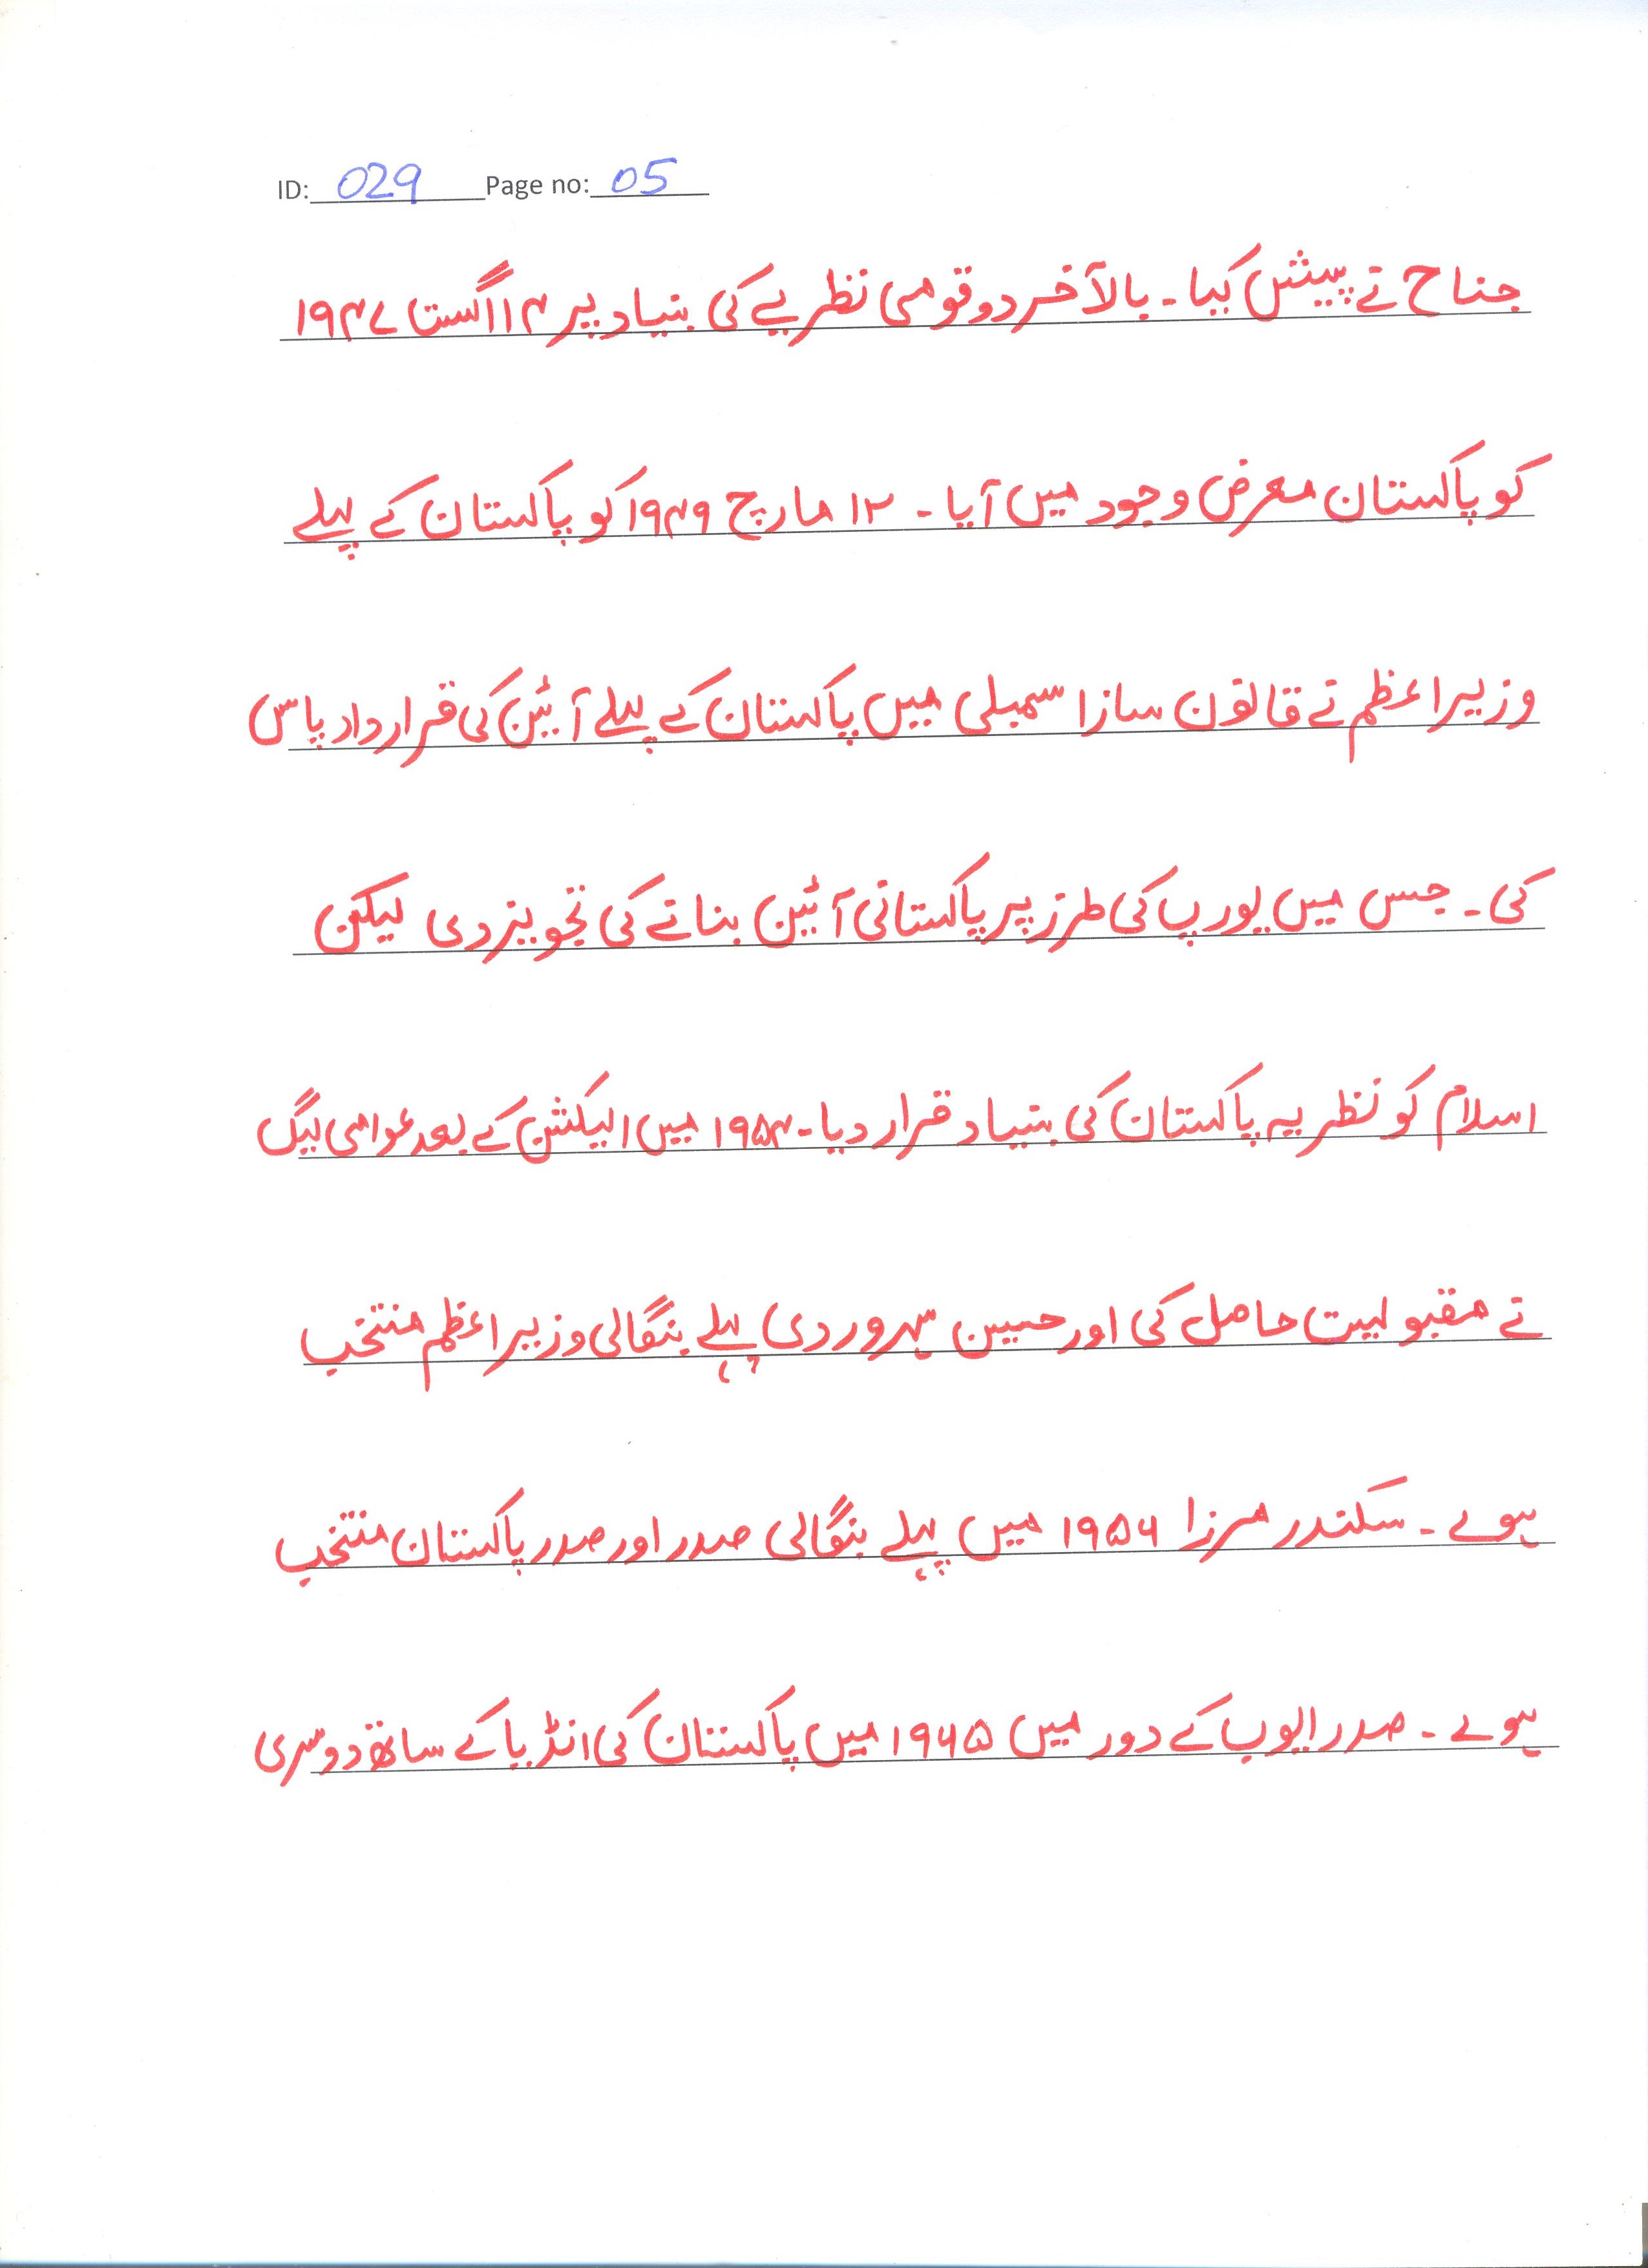 ID: 029 Page no: 05
جناح نے پیش کیا۔ بالآخر دو قومی نظریے کی بنیاد پر ۱۴ اگست ۱۹۴۷
کو پاکستان معرض وجود میں آیا۔ ۱۲ مارچ ۱۹۴۹ کو پاکستان کے پہلے
وزیر اعظم نے قانون ساز اسمبلی میں پاکستان کے پہلے آئین کی قرارداد پاس
کی۔ جس میں یورپ کی طرز پر پاکستانی آئین بنانے کی تجویز دی لیکن
اسلام کو نظریہ پاکستان کی بنیاد قرار دیا۔ ۱۹۵۴ میں الیکشن کے بعد عوامی لیگ
نے مقبولیت حاصل کی اور حسین سہروردی پہلے بنگالی وزیر اعظم منتخب
ہوے۔ سکندر مرزا ۱۹۵۶ میں پہلے بنگالی صدر اور صدر پاکستان منتخب
ہوے۔ صدر ایوب کے دور میں ۱۹۶۵ میں پاکستان کی انڈیا کے ساتھ دوسری